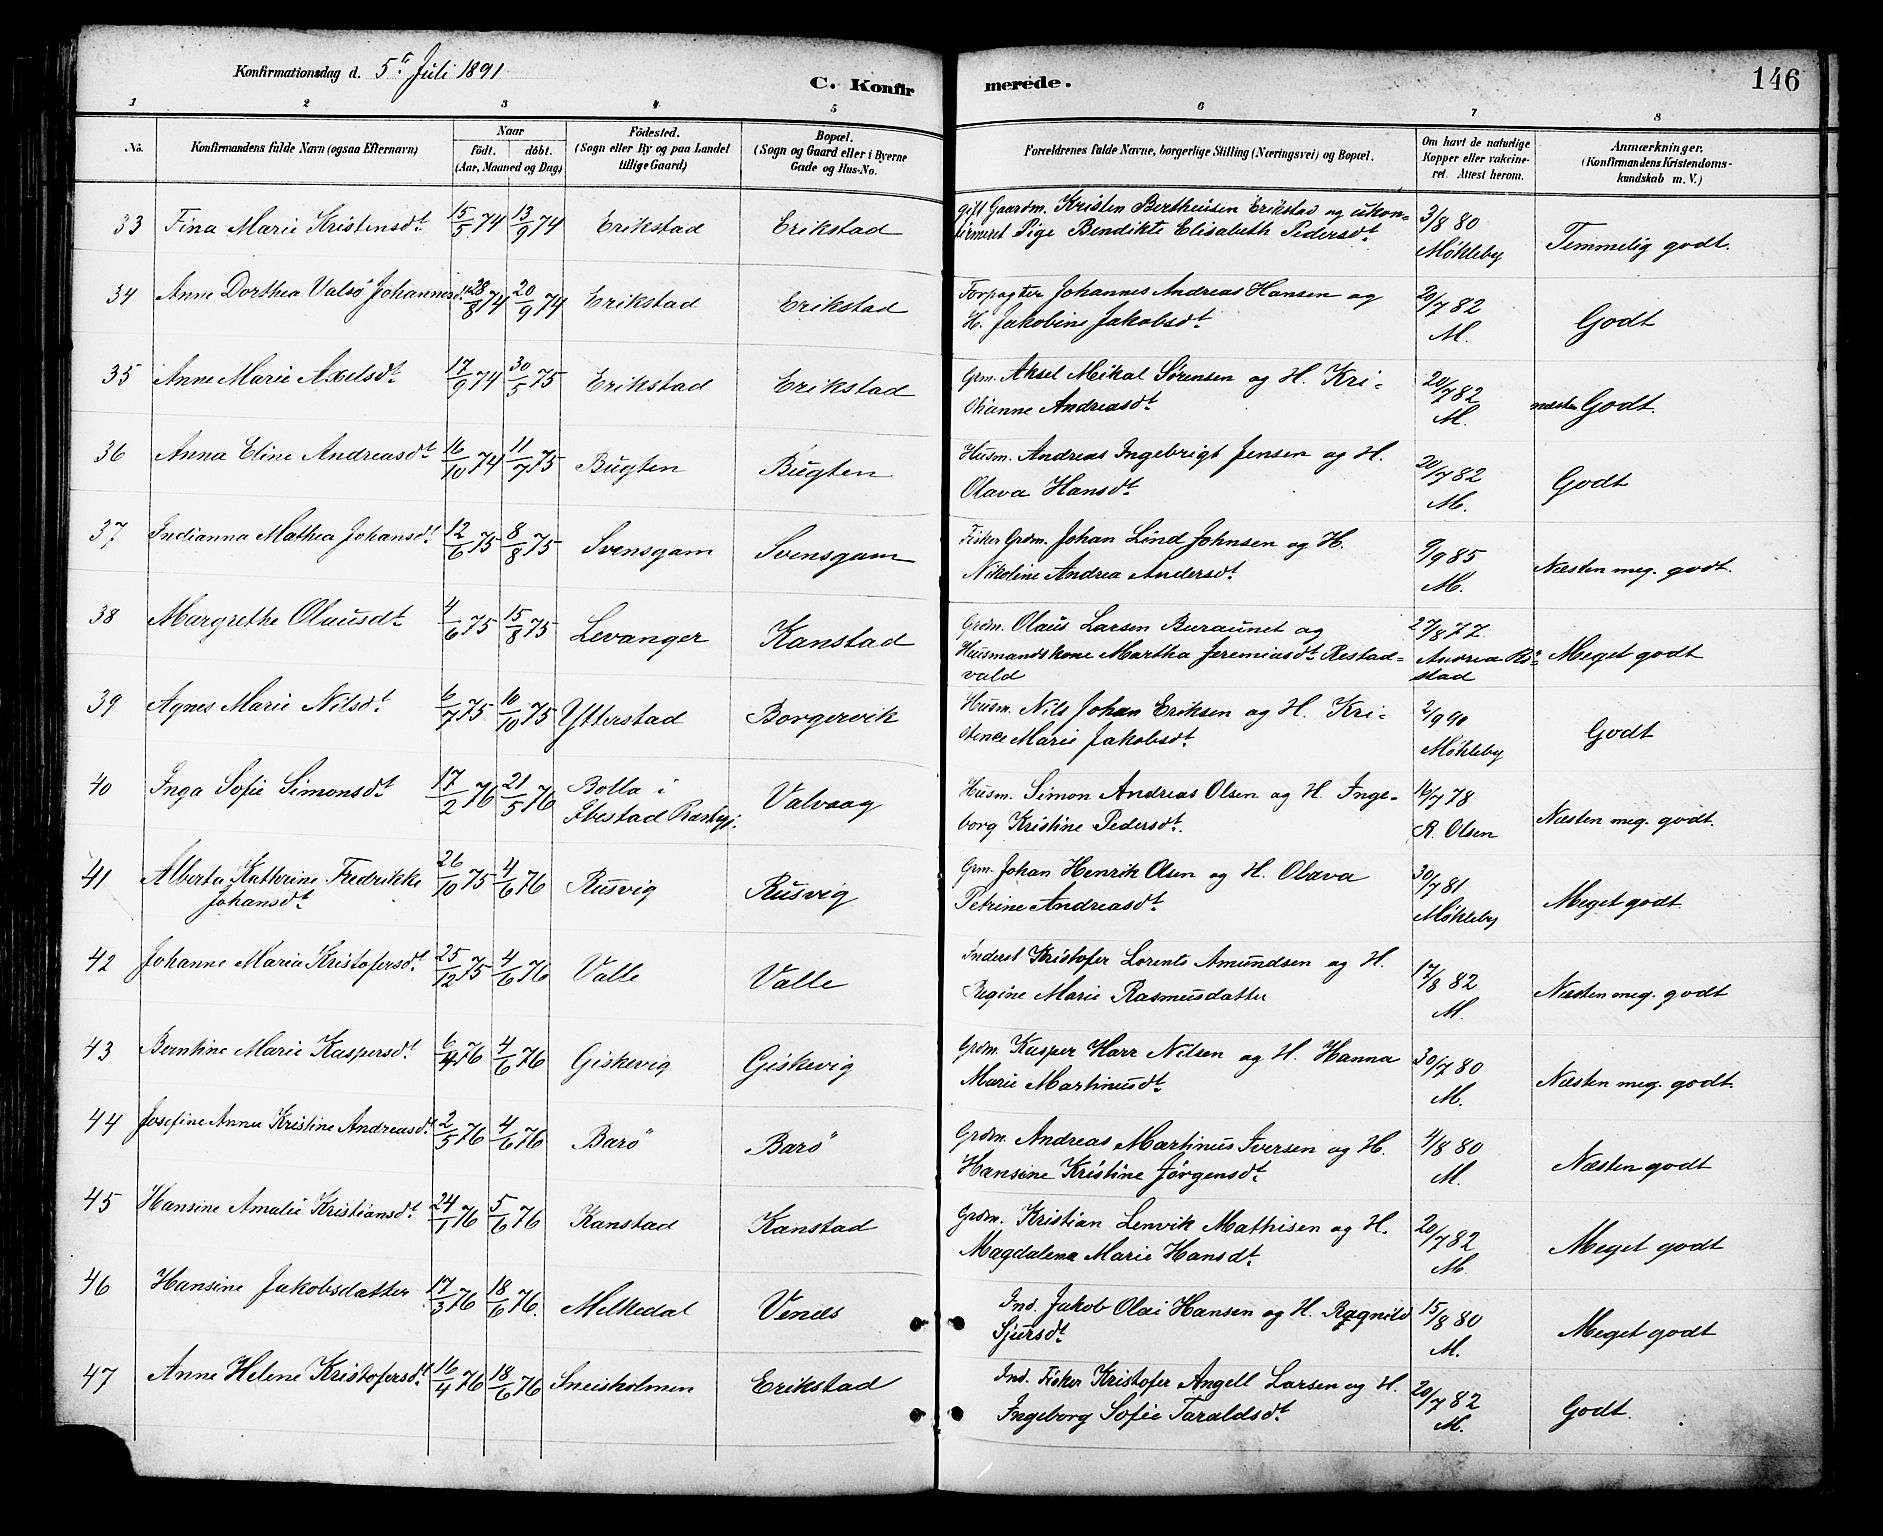 Konfirmationsdag d. 5te Juli 1891
C. Konfirmerede.
146
1 2 3 4 5 6 7 8
No. Konfirmandens fulde Navn (ogsaa Efternavn) Naar Födt. döbt. (Aar, Maaned og Dag) Födested. (Sogn eller By og paa Landet tillige Gaard) Bopæl. (Sogn og Gaard eller i Byerne Gade og Hus-No. Forældrenes fulde Navne, borgerlige Stilling (Næringsvei) og Bopæl. Om havt de naturlige Kopper eller vakcineret. Attest herom. Anmærkninger. (Konfirmandens Kristendomskundskab m. V.)
33 Fina Marie Kristensdt. 15/5 74 13/9 74 Erikstad Erikstad gift Gaardm. Kristen Bertheusen Erikstad og ukon- 3/8 80
firmeret Pige Bendikte Elisabeth Pedersdt. Møkleby Temmelig godt.
34 Anne Dorthea Valsö Johannesdt. 28/8 74 20/9 74 Erikstad Erikstad Forpagter Johannes Andreas Hansen og 20/7 82
H. Jakobine Jakobsdt. M. Godt
35 Anne Marie Axelsdt. 17/9 74 30/5 75 Erikstad Erikstad Grm. Aksel Mikal Sörensen og H. Kri- 20/7 82
stianne Andreasdt. M. næsten Godt.
36 Anna Eline Andreasdt. 16/10 74 11/7 75 Bugten Bugten Husm. Andreas Ingebrigt Jensen og H. 20/7 82
Olava Hansdt. M. Godt
37 Indianna Mathea Johansdt. 12/6 75 8/8 75 Svensgam Svensgam Fisker Grdm. Johan Lind Johnsen og H. 9/9 85
Nikoline Andrea Andersdt. M. Næsten meg. godt.
38 Margrethe Olausdt. 4/6 75 15/8 75 Levanger Kanstad Grdm. Olaus Larsen Buraunet og 27/8 77
Husmandskone Martha Jeremiasdt. Restad- Andrea Rö- Meget godt
vald stad
39 Agnes Marie Nilsdt. 6/7 75 10/10 75 Ytterstad Borgervik Husm. Nils Johan Eriksen og H. Kri- 2/9 90
stence Marie Jakobsdt. Møkleby Godt
40 Inga Sofie Simonsdt. 17/2 76 21/5 76 Bolla i Valvaag Husm. Simon Andreas Olsen og H. Inge- 16/7 78
Ibestad Præstegj. borg Kristine Pedersdt. R. Olsen Næsten meg. godt.
41 Alberta Kathrine Fredrikke 26/10 75 4/6 76 Rusvig Rusvig Grm. Johan Henrik Olsen og H. Olava 30/7 81
Johansdt. Petrine Andreasdt. Møkleby Meget godt
42 Johanne Maria Kristofersdt. 25/12 75 4/6 76 Valle Valle Inderst Kristofer Lorents Amundsen og H. 17/8 82
Regine Marie Rasmusdatter M. Næsten meg. godt
43 Berntine Marie Kaspersdt. 6/4 76 4/6 76 Giskevig Giskevig Grdm. Kasper Harr Nilsen og H. Hanna 30/7 80
Marie Martinusdt. M. Næsten meg. godt.
44 Josefine Anna Kristine Andreasdt. 2/5 76 4/6 76 Barö Barö Grdm. Andreas Martinus Iversen og H. 4/8 80
Hansine Kristine Jørgensdt. M. Næsten godt
45 Hansine Amalie Kristiansdt. 24/1 76 5/6 76 Kanstad Kanstad Grdm. Kristian Lenvik Mathisen og H. 20/7 82
Magdalena Marie Hansdt. M. Meget godt
46 Hansine Jakobsdatter 17/3 76 18/6 76. Melkedal Venæs Ind. Jakob Olai Hansen og H. Ragnild 15/8 80
Sjursdt. M. Meget godt
47 Anne Helene Kristofersdt. 16/4 76 18/6 76 Sneisholmen Erikstad Ind. Fisker Kristofer Angell Larsen og H. 20/7 82
Ingeborg Sofie Taraldsdt. M. Godt.